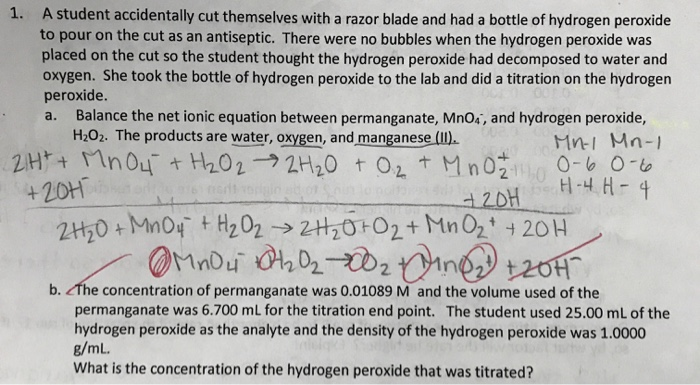 1. A student accidentally cut themselves with a razor blade and had a bottle of hydrogen peroxide
to pour on the cut as an antiseptic. There were no bubbles when the hydrogen peroxide was
placed on the cut so the student thought the hydrogen peroxide had decomposed to water and
oxygen. She took the bottle of hydrogen peroxide to the lab and did a titration on the hydrogen
peroxide.
a. Balance the net ionic equation between permanganate, MnO₄⁻, and hydrogen peroxide,
H₂O₂. The products are water, oxygen, and manganese (II).
Mn-1 Mn-1
2H⁺ + MnO₄⁻ + H₂O₂ → 2H₂O + O₂ + MnO₂⁺ O-6 O-6
+ 2OH⁻ + 2OH H-4 H-4
2H₂O + MnO₄⁻ + H₂O₂ → 2H₂O + O₂ + MnO₂⁺ + 2OH
MnO₄⁻ H₂O₂ → O₂ MnO₂⁺ + 2OH⁻
b. The concentration of permanganate was 0.01089 M and the volume used of the
permanganate was 6.700 mL for the titration end point. The student used 25.00 mL of the
hydrogen peroxide as the analyte and the density of the hydrogen peroxide was 1.0000
g/mL.
What is the concentration of the hydrogen peroxide that was titrated?